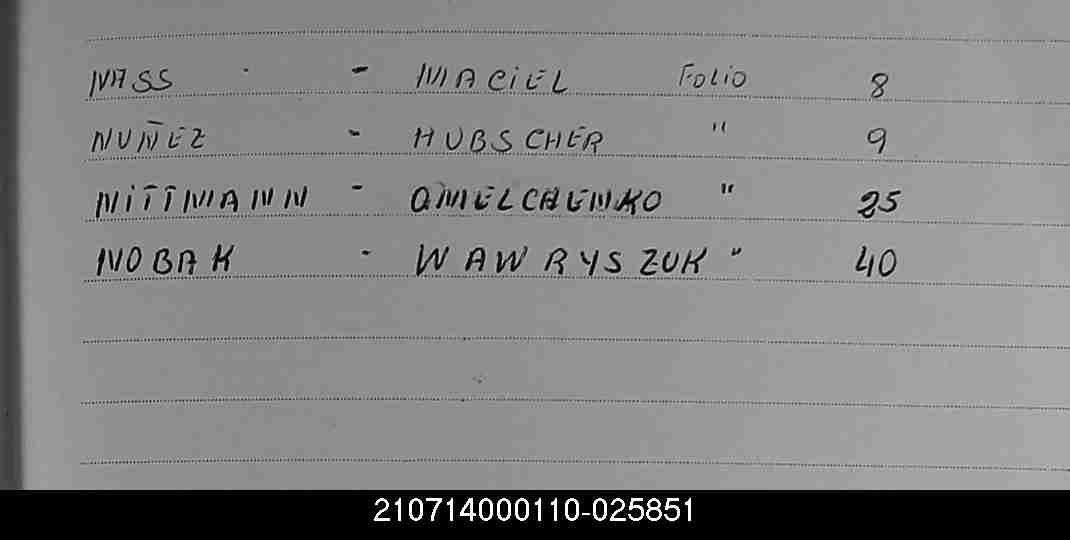 NASS - MACIEL FOLIO 8
NUÑEZ - HUBSCHER " 9
NITTMANN - OMELCHENKO " 25
NOBAK - WAWRYSZUK " 40
210714000110-025851